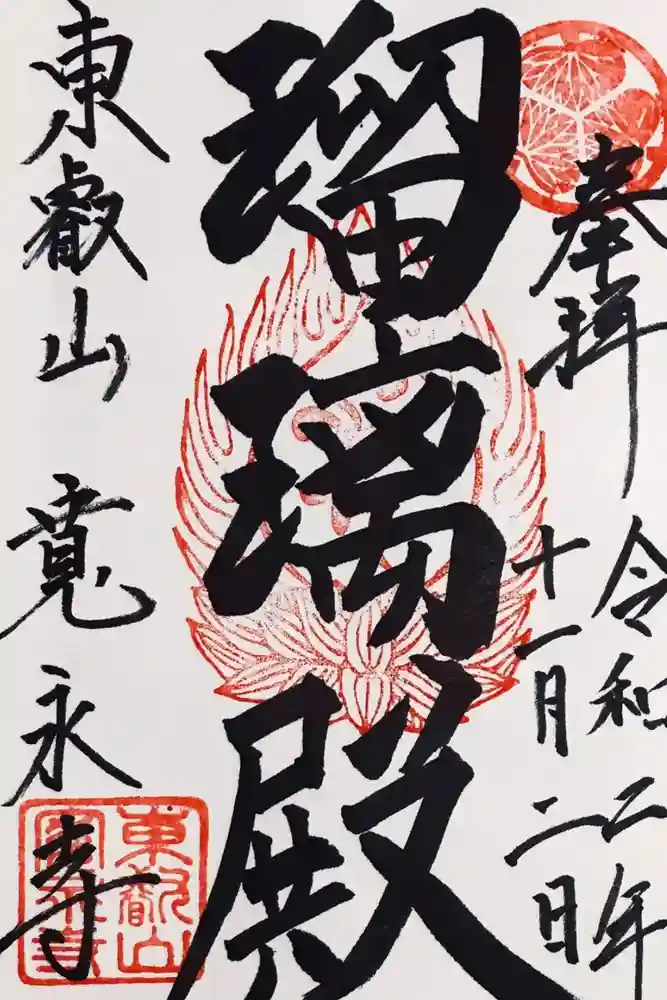 奉拝
令和二年
十一月二日
瑠璃殿
東叡山 寛永寺
東叡山
寛永寺